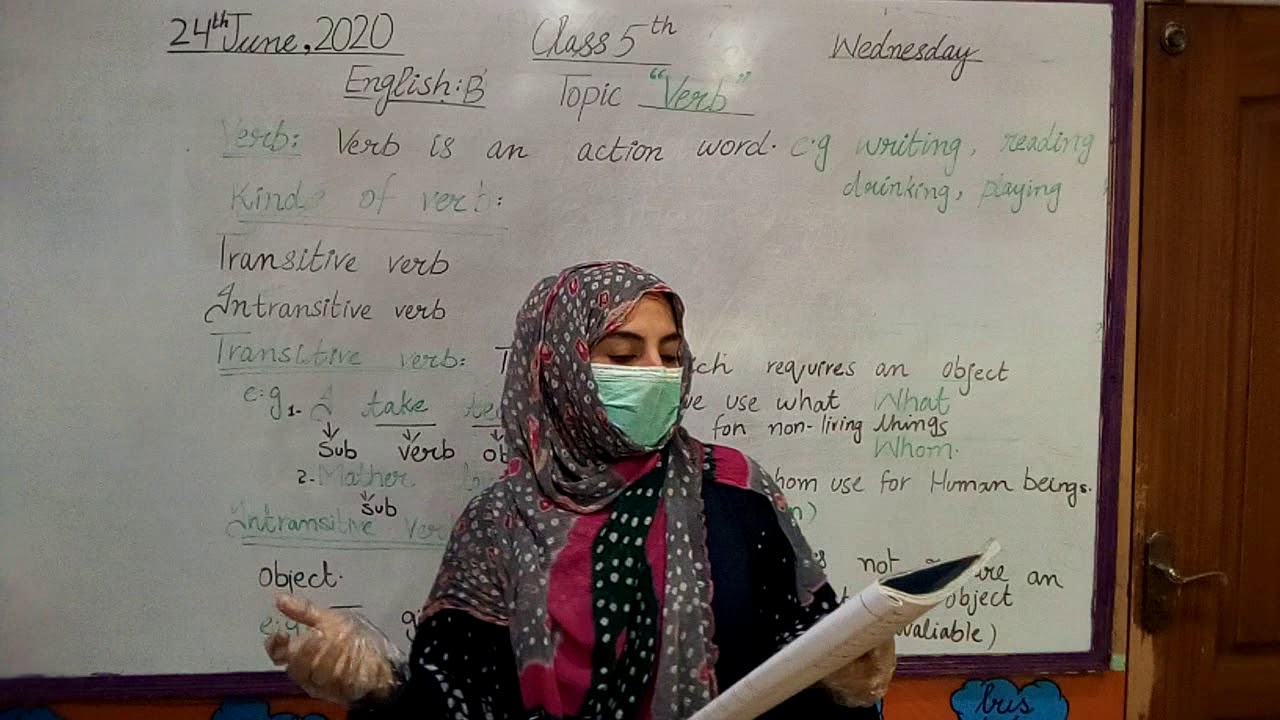 24th June, 2020 Class 5th Wednesday
English: B Topic "Verb"
Verb: Verb is an action word. e:g writing, reading
drinking, playing
Kinds of verb:
Transitive verb
Intransitive verb
Transitive verb: requires an object
e:g 1- I take we use what What
for non-living things
Sub verb Whom.
2- Mother use for Human beings.
Sub
Intransitive not an
object. object
e:g valiable)